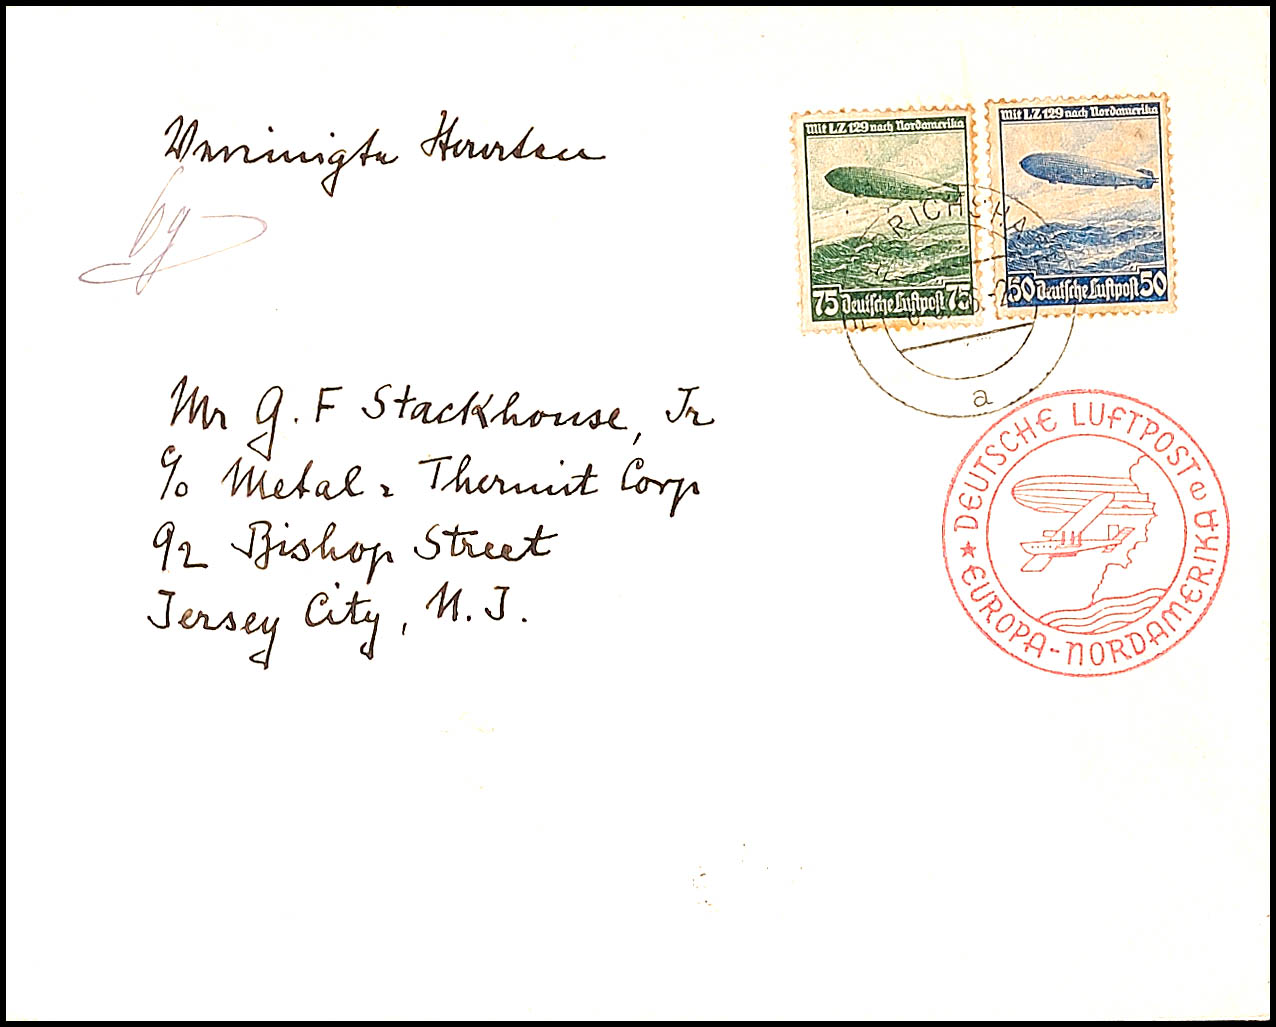 Vereinigte Staaten
Mit LZ 129 nach Nordamerika
75 Deutsche Luftpost 75
Mit LZ 129 nach Nordamerika
50 Deutsche Luftpost 50
a
Mr G. F Stackhouse, Jr
c/o Metal = Thermit Corp
92 Bishop Street
Jersey City, N. J.
DEUTSCHE LUFTPOST
★ EUROPA-NORDAMERIKA